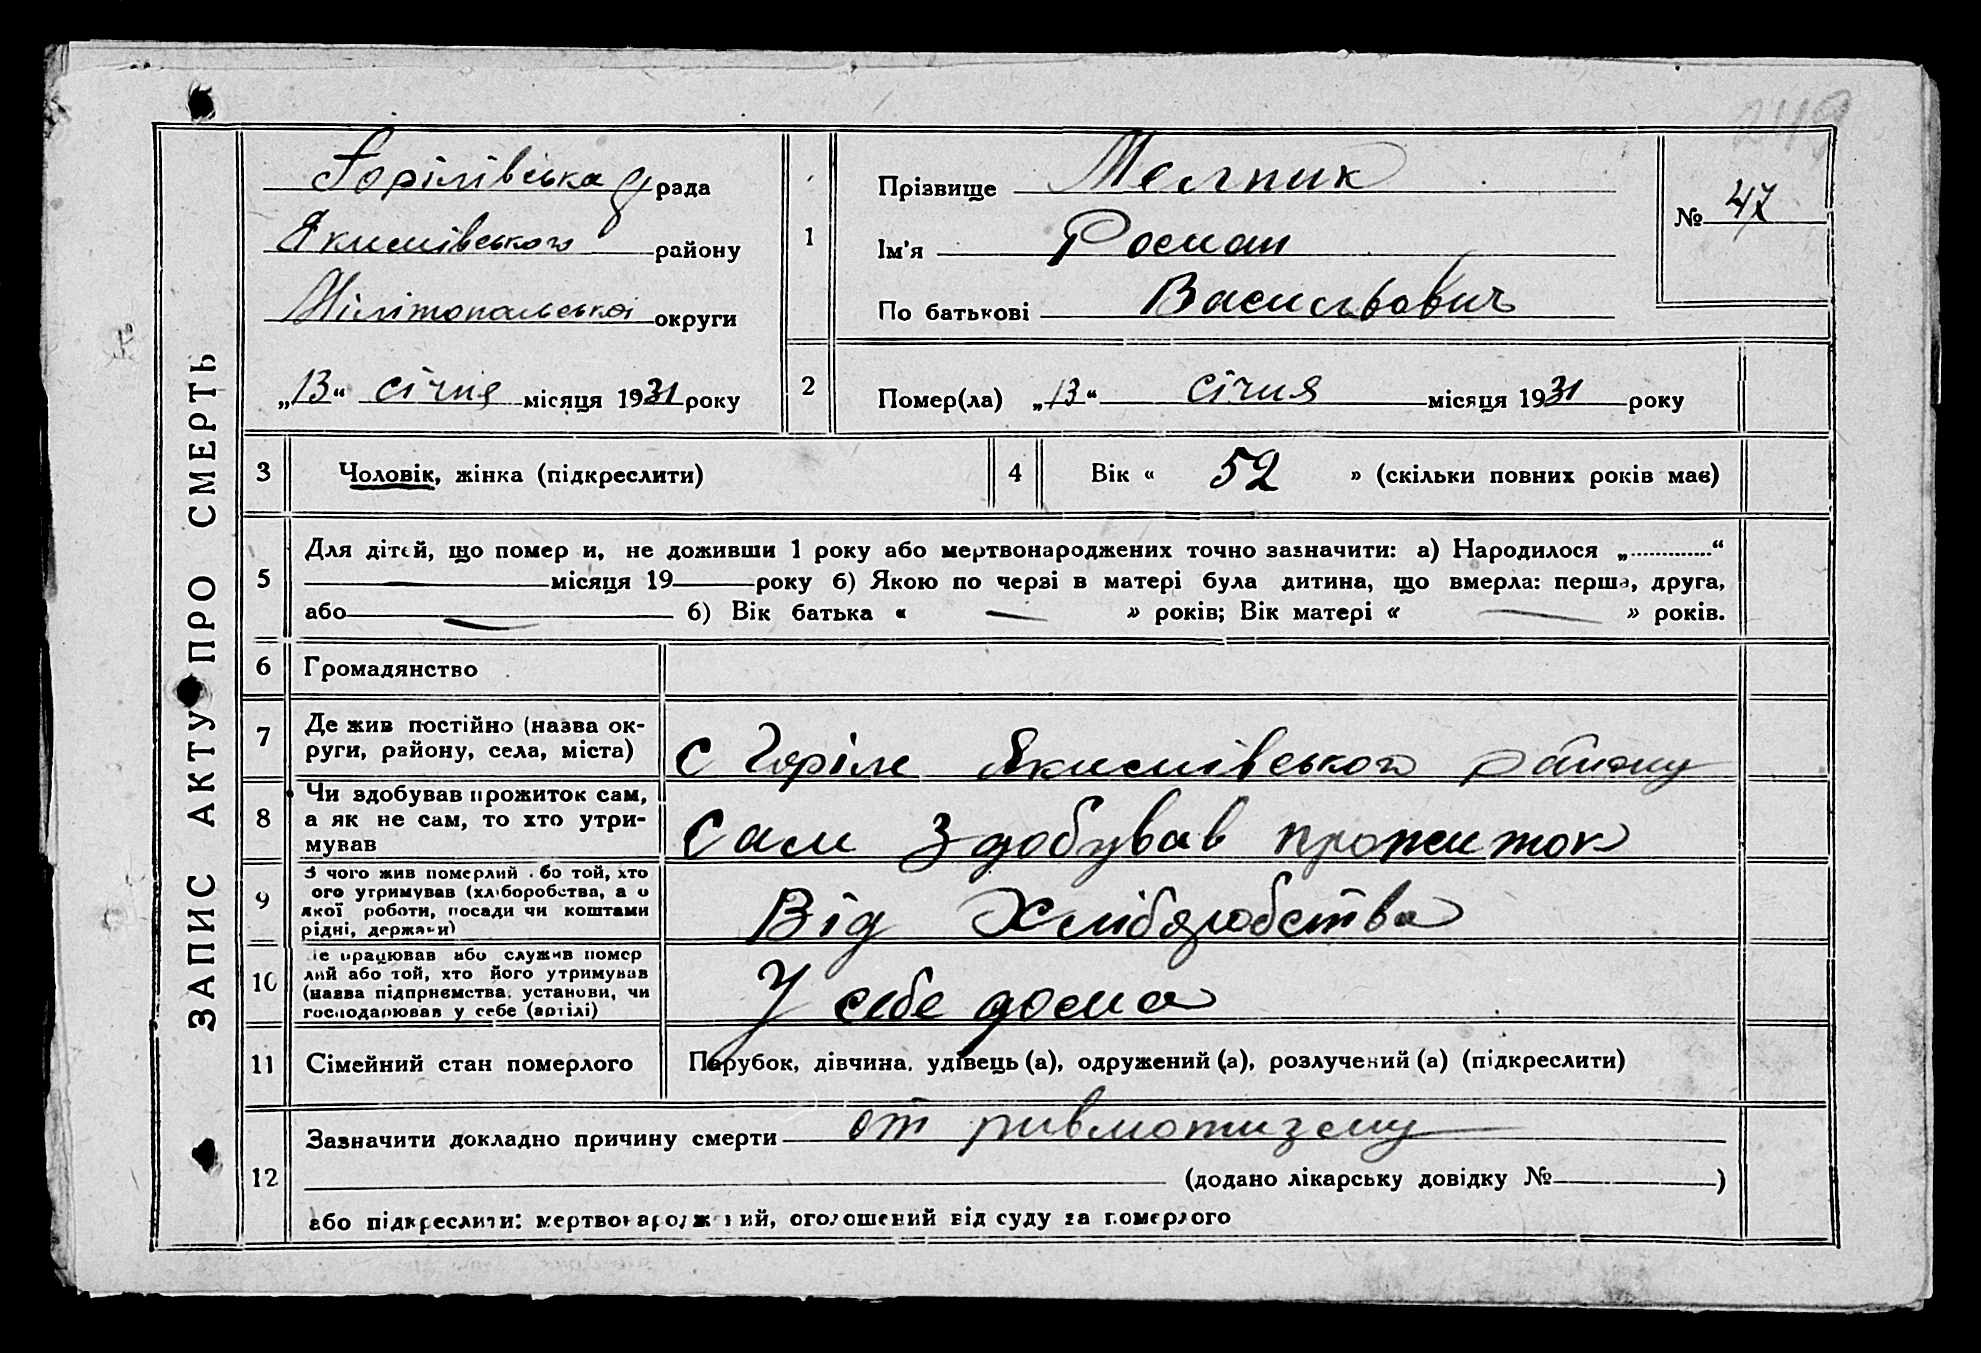 249
ЗАПИС АКТУ ПРО СМЕРТЬ
Горілівська рада
Якимівського району
Мілітопольської округи
„13“ січня місяця 1931 року
1
Прізвище Мелник
Ім'я Роман
По батькові Васильович
№ 47
2
Помер(ла) „13“ січня місяця 1931 року
3 Чоловік, жінка (підкреслити)
4 Вік « 52 » (скільки повних років має)
5
Для дітей, що помер и, не доживши 1 року або мертвонароджених точно зазначити: а) Народилося „..............“
місяця 19 року б) Якою по черзі в матері була дитина, що вмерла: перша, друга,
або б) Вік батька « — » років; Вік матері « — » років.
6 Громадянство
7
Де жив постійно (назва ок-
руги, району, села, міста)
С Горіле Якимівського району
8
Чи здобував прожиток сам,
а як не сам, то хто утри-
мував
Сам здобував прожиток
9
З чого жив померлий або той, хто
ого утримував (хліборобства, а о
якої роботи, посади чи коштами
рідні, держави)
Від Хліборобства
10
Де працював або служив помер
лий або той, хто його утримував
(назва підприємства, установи, чи
господарював у себе (артілі)
У себе дома
11 Сімейний стан померлого
Парубок, дівчина, удівець (а), одружений (а), розлучений (а) (підкреслити)
12
Зазначити докладно причину смерти от ривмотизму
(додано лікарську довідку № )
або підкреслити: мертвонароджений, оголошений від суду за померлого